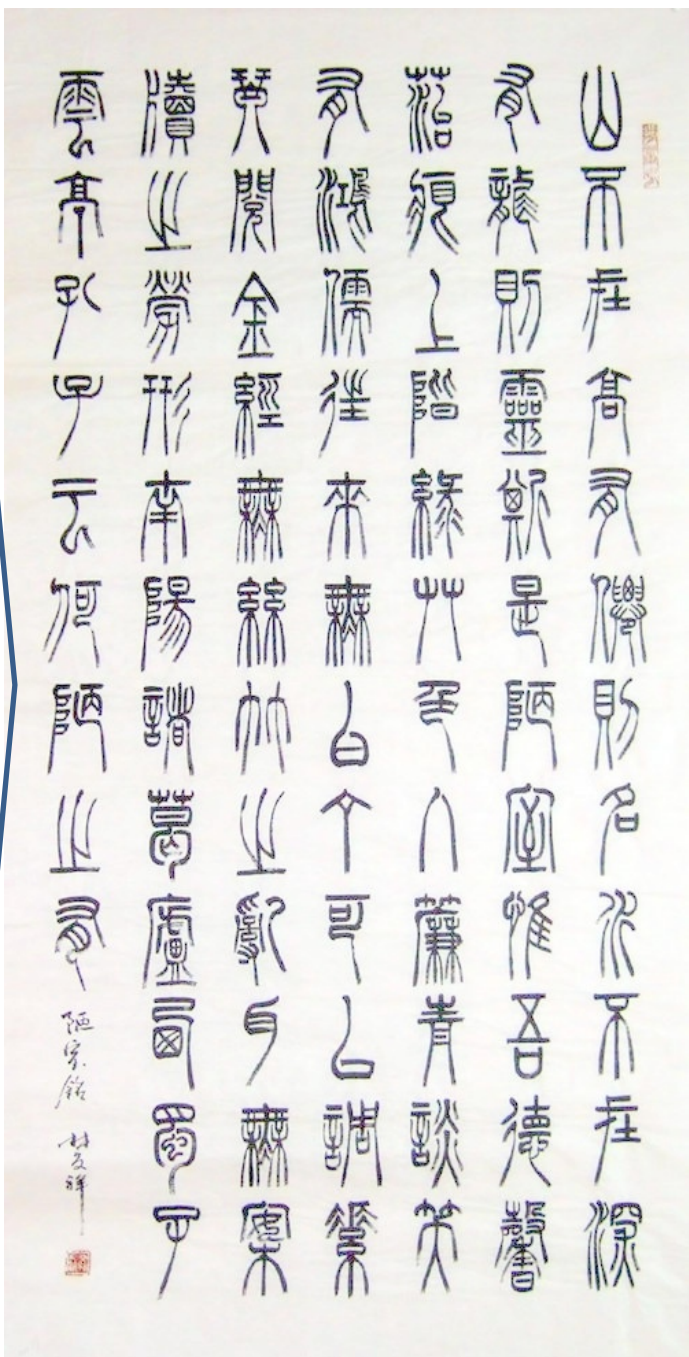 山不在高有僊則名水不在深
有龍則靈斯是陋室惟吾德馨
菭痕上階綠艸色入簾青談笑
有鴻儒往來無白丁可以調素
琴閱金經無絲竹之亂耳無案
牘之勞形南陽諸葛廬西蜀子
雲亭孔子云何陋之有
陋室銘